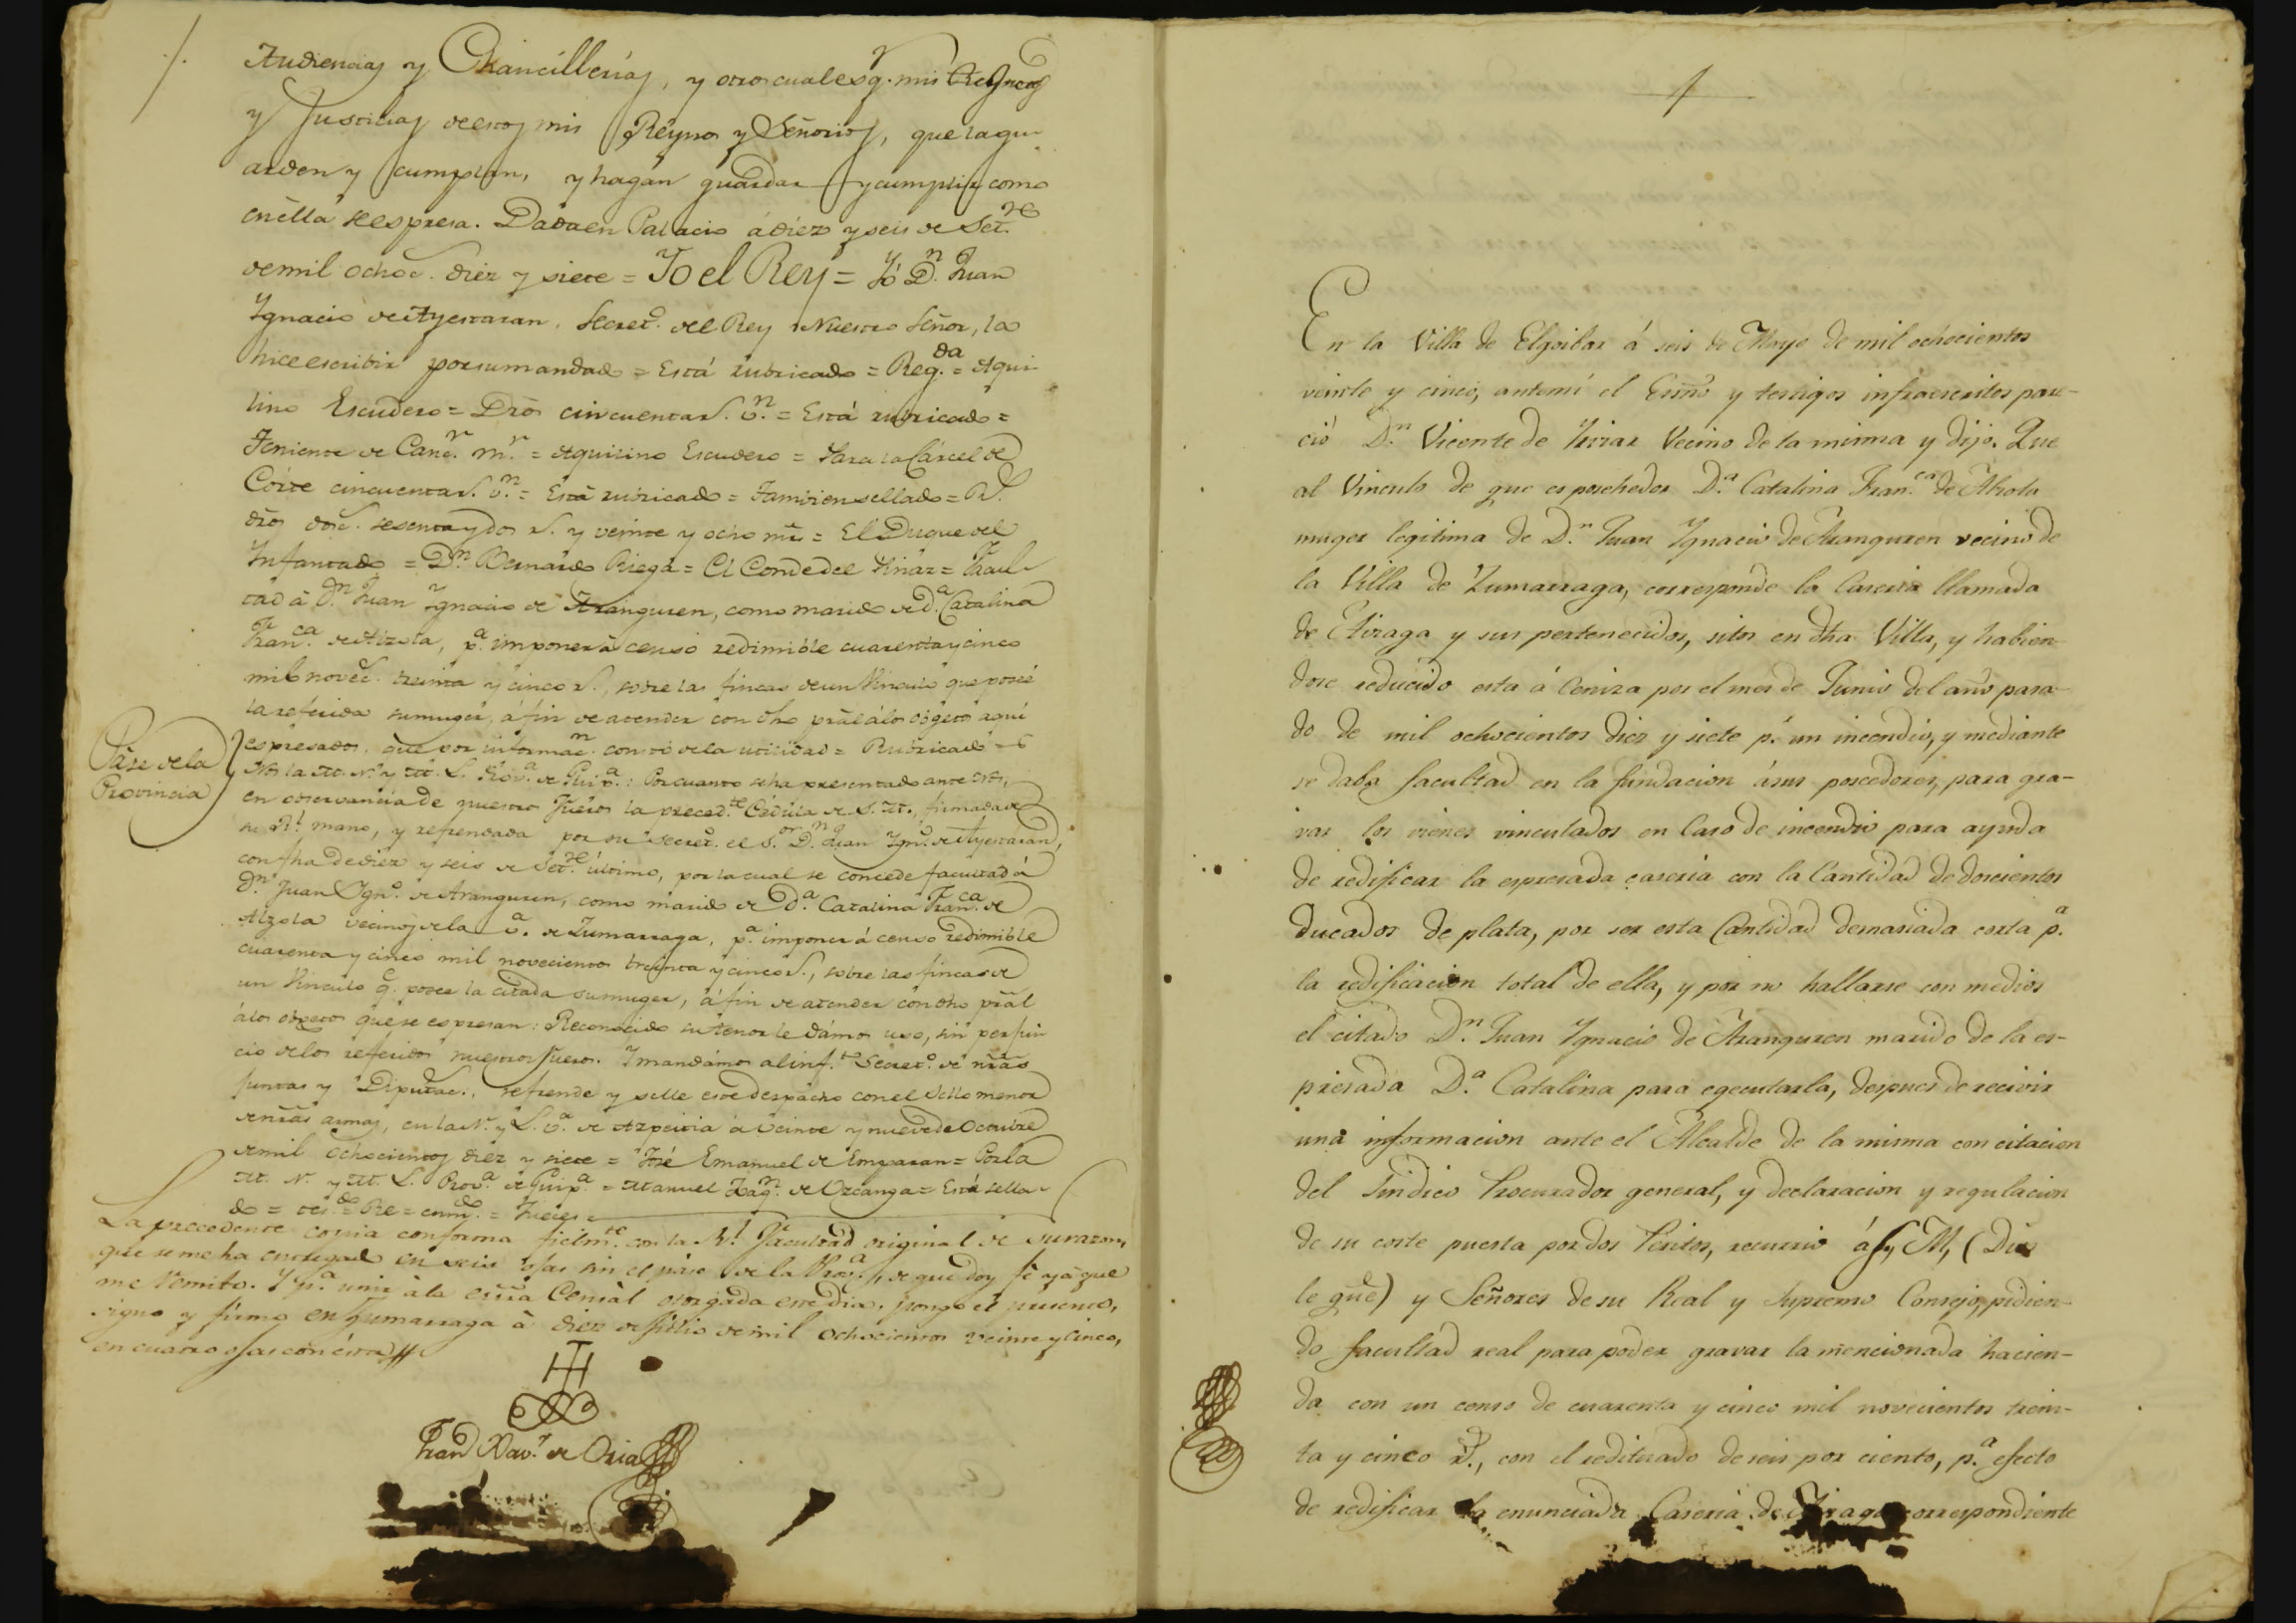 Audiencias y Chancillerías, y otros cualesq. mis Jueces
y Justicias de estos mis Reynos y Señorios, que la gu-
arden y cumplan, y hagan guardar y cumplir como
en ella se espresa. Dada en Palacio á diez y seis de Set.re
de mil ochoc. diez y siete = Yo el Rey = Yó D.n Juan
Ygnacio de Ayestaran, Secret.o del Rey Nuestro Señor, la
hice escribir por su mandado = Está rubricado = Reg.da = Aqui-
lino Escudero = Dro͂s cincuenta r.s v.n = Está rubricado =
Teniente de Canc.r m.r = Aquilino Escudero = Para la Cárcel de
Córte cincuenta r.s v.n = Está rubricado = Tambien sellado = R.s
dro͂s dosc. sesenta y dos r.s y veinte y ocho mr͂s = El Duque del
Infantado = D.n Bernardo Riega = El Conde del Pinar = Facul-
tad á D.n Juan Ygnacio de Aranguren, como marido de D.a Catalina
Fran.ca de Alzola, p.a imponer á censo redimible cuarenta y cinco
mil novec. treinta y cinco r.s, sobre las fincas de un Vinculo que poseé
la referida su muger, á fin de atender con dho prãl á los objetos aqui
espresados, que por informac.n constó de la utilidad = Rubricado =
Páse de la
Provincia
Nos la M. N. y M. L. Prov.a de Guip.a: Por cuanto se ha presentado ante nos,
en observancia de nuestros Fueros la preced.te Cédula de S. M., firmada de
su R.l mano, y refrendada por su Secret.o el S.or D.n Juan Ygn.o de Ayestaran,
con fha de diez y seis de Set.re último, por la cual se concede facultad á
D.n Juan Ygn.o de Aranguren, como marido de D.a Catalina Fran.ca de
Alzola vecinos de la v.a de Zumarraga, p.a imponer á censo redimible
cuarenta y cinco mil novecientos treinta y cinco r.s, sobre las fincas de
un Vinculo q. posee la citada su muger, á fin de atender con dho prãl
á los objetos que se espresan: Reconocido su tenor le dámos uso, sin perjui-
cio de los referidos nuestros fueros. Y mandámos al inf.to Secret.o de nr͂as
Juntas y Diputac.s, refrende y selle este despacho con el Sello menor
de nr͂as armas, en la N. y L. v.a de Azpeitia á veinte y nueve de Octubre
de mil ochocientos diez y siete = José Emanuel de Emparan = Por la
M. N. y M. L. Prov.a de Guip.a = Manuel Joaq.n de Uzcanga = Está sella-
do =
La precedente copia conforma fielm.te con la R.l facultad original de su razon,
que se me ha entregado en seis ojas sin el páse de la Prov.a, de que doy fé y á que
me remito. Y p.a unir á la esr͂ra Censàl otorgada este dia, pongo el presente,
signo y firmo en Zumarraga à diez de Julio de mil ochocientos veinte y cinco,
en cuatro ojas con ésta
Fran.co Xav.r de Oria
En la Villa de Elgoibar á seis de Mayo de mil ochocientos
veinte y cinco, antemí el Esn͂o y testigos infraescritos pare-
ció D.n Vicente de Yrriar Vecino de la misma y dijo. Que
al Vinculo de que es posehedor D.a Catalina Fran.ca de Alzola
muger legitima de D.n Juan Ygnacio de Aranguren vecino de
la Villa de Zumarraga, corresponde la Caseria llamada
de Eliraga y sus pertenecidos, sitos en dha Villa, y habien-
dose reducido esta á Ceniza por el mes de Junio del año pasa-
do de mil ochocientos diez y siete p.r un incendio, y mediante
se daba facultad en la fundacion á sus poseedores, para gra-
var los vienes vinculados en Caso de incendio para ayuda
de redificar la espresada caseria con la Cantidad de doscientos
ducados de plata, por ser esta Cantidad demasiada corta p.a
la redificacion total de ella, y por no hallarse con medios
el citado D.n Juan Ygnacio de Aranguren marido de la es-
presada D.a Catalina para egecutarla, despues de recivir
una informacion ante el Alcalde de la misma con citacion
del Sindico Procurador general, y declaracion y regulacion
de su coste puesta por dos Peritos, recurrió á S, M, (Dios
le gũe) y Señores de su Real y Supremo Consejo, pidien-
do facultad real para poder gravar la mencionada hacien-
da con un censo de cuarenta y cinco mil novecientos trein-
ta y cinco r.s, con el redituado de seis por ciento, p.a efecto
de redificar la enunciada Caseria de correspondiente